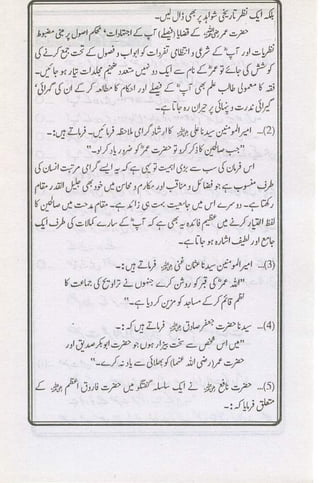 بلکہ ایک نظر تاریخی شواہد پر بھی ڈال لیں۔
حضرت عمر کے قضایا (فیصلے) آپ کے اجتہادات، محکم اصول پر مبنی مضبوط
نظریات اور آپ کے شرعی و انتظامی تفردات کو ابواب و فصول کے تحت جمع کرنے کی
کوشش کی جائے تو عمر کے نام سے ایک دو نہیں متعدد ضخیم مجلدات تیار ہو جائیں۔
فقہ کا معمولی طالب علم بھی آپ کے فیصلے اور احکام کا مطالعہ کر کے ان کی گہرائی
گیرائی ندرت و پنہائی پر حیران رہ جاتا ہے۔
(2)... امیر المومنین سیدنا علی کا ارشاد گرامی ملاحظہ فرمائیں۔ فرماتے ہیں:۔
”جب صالحین کا ذکر کرو تو حضرت عمر کو ضرور یاد کر لو۔“
اس فرمان کی سب سے بڑی اہمیت تو یہی ہے کہ یہ ایسے گرامی مرتبت انسان کی
طرف منسوب ہے جو فضائل و مناقب اور مکارم و محاسن میں خود بھی جلیل القدر مقام
رکھتا ہے۔ دوسرے اس میں جامعیت بہت ہی زائد ہے۔ مقام مدحت میں صالحین کا
لفظ اختیار کرنے میں عظیم فائدہ یہ بھی ہے کہ آپ کے سارے کمالات کی طرف ایک
جامع اور لطیف اشارہ ہو جاتا ہے۔
(3)... امیر المومنین سیدنا عثمان غنی فرماتے ہیں:۔
”اللہ عمر کی قبر کو روشن کرے جنہوں نے تراویح کی جماعت کا
نظم قائم کر کے مساجد کو مزین کر دیا ہے۔“
(4)... سیدنا حضرت جعفر صادق فرماتے ہیں کہ:۔
”میں اس شخص سے سخت بیزار ہوں جو حضرت ابوبکر صدیق اور
حضرت عمر (رضی اللہ عنہما) کو بھلائی سے یاد نہ کرے۔“
(5)... حضرت نافع نے ایک سلسلہ گفتگو میں حضرت فاروق اعظم کے
متعلق فرمایا کہ:۔